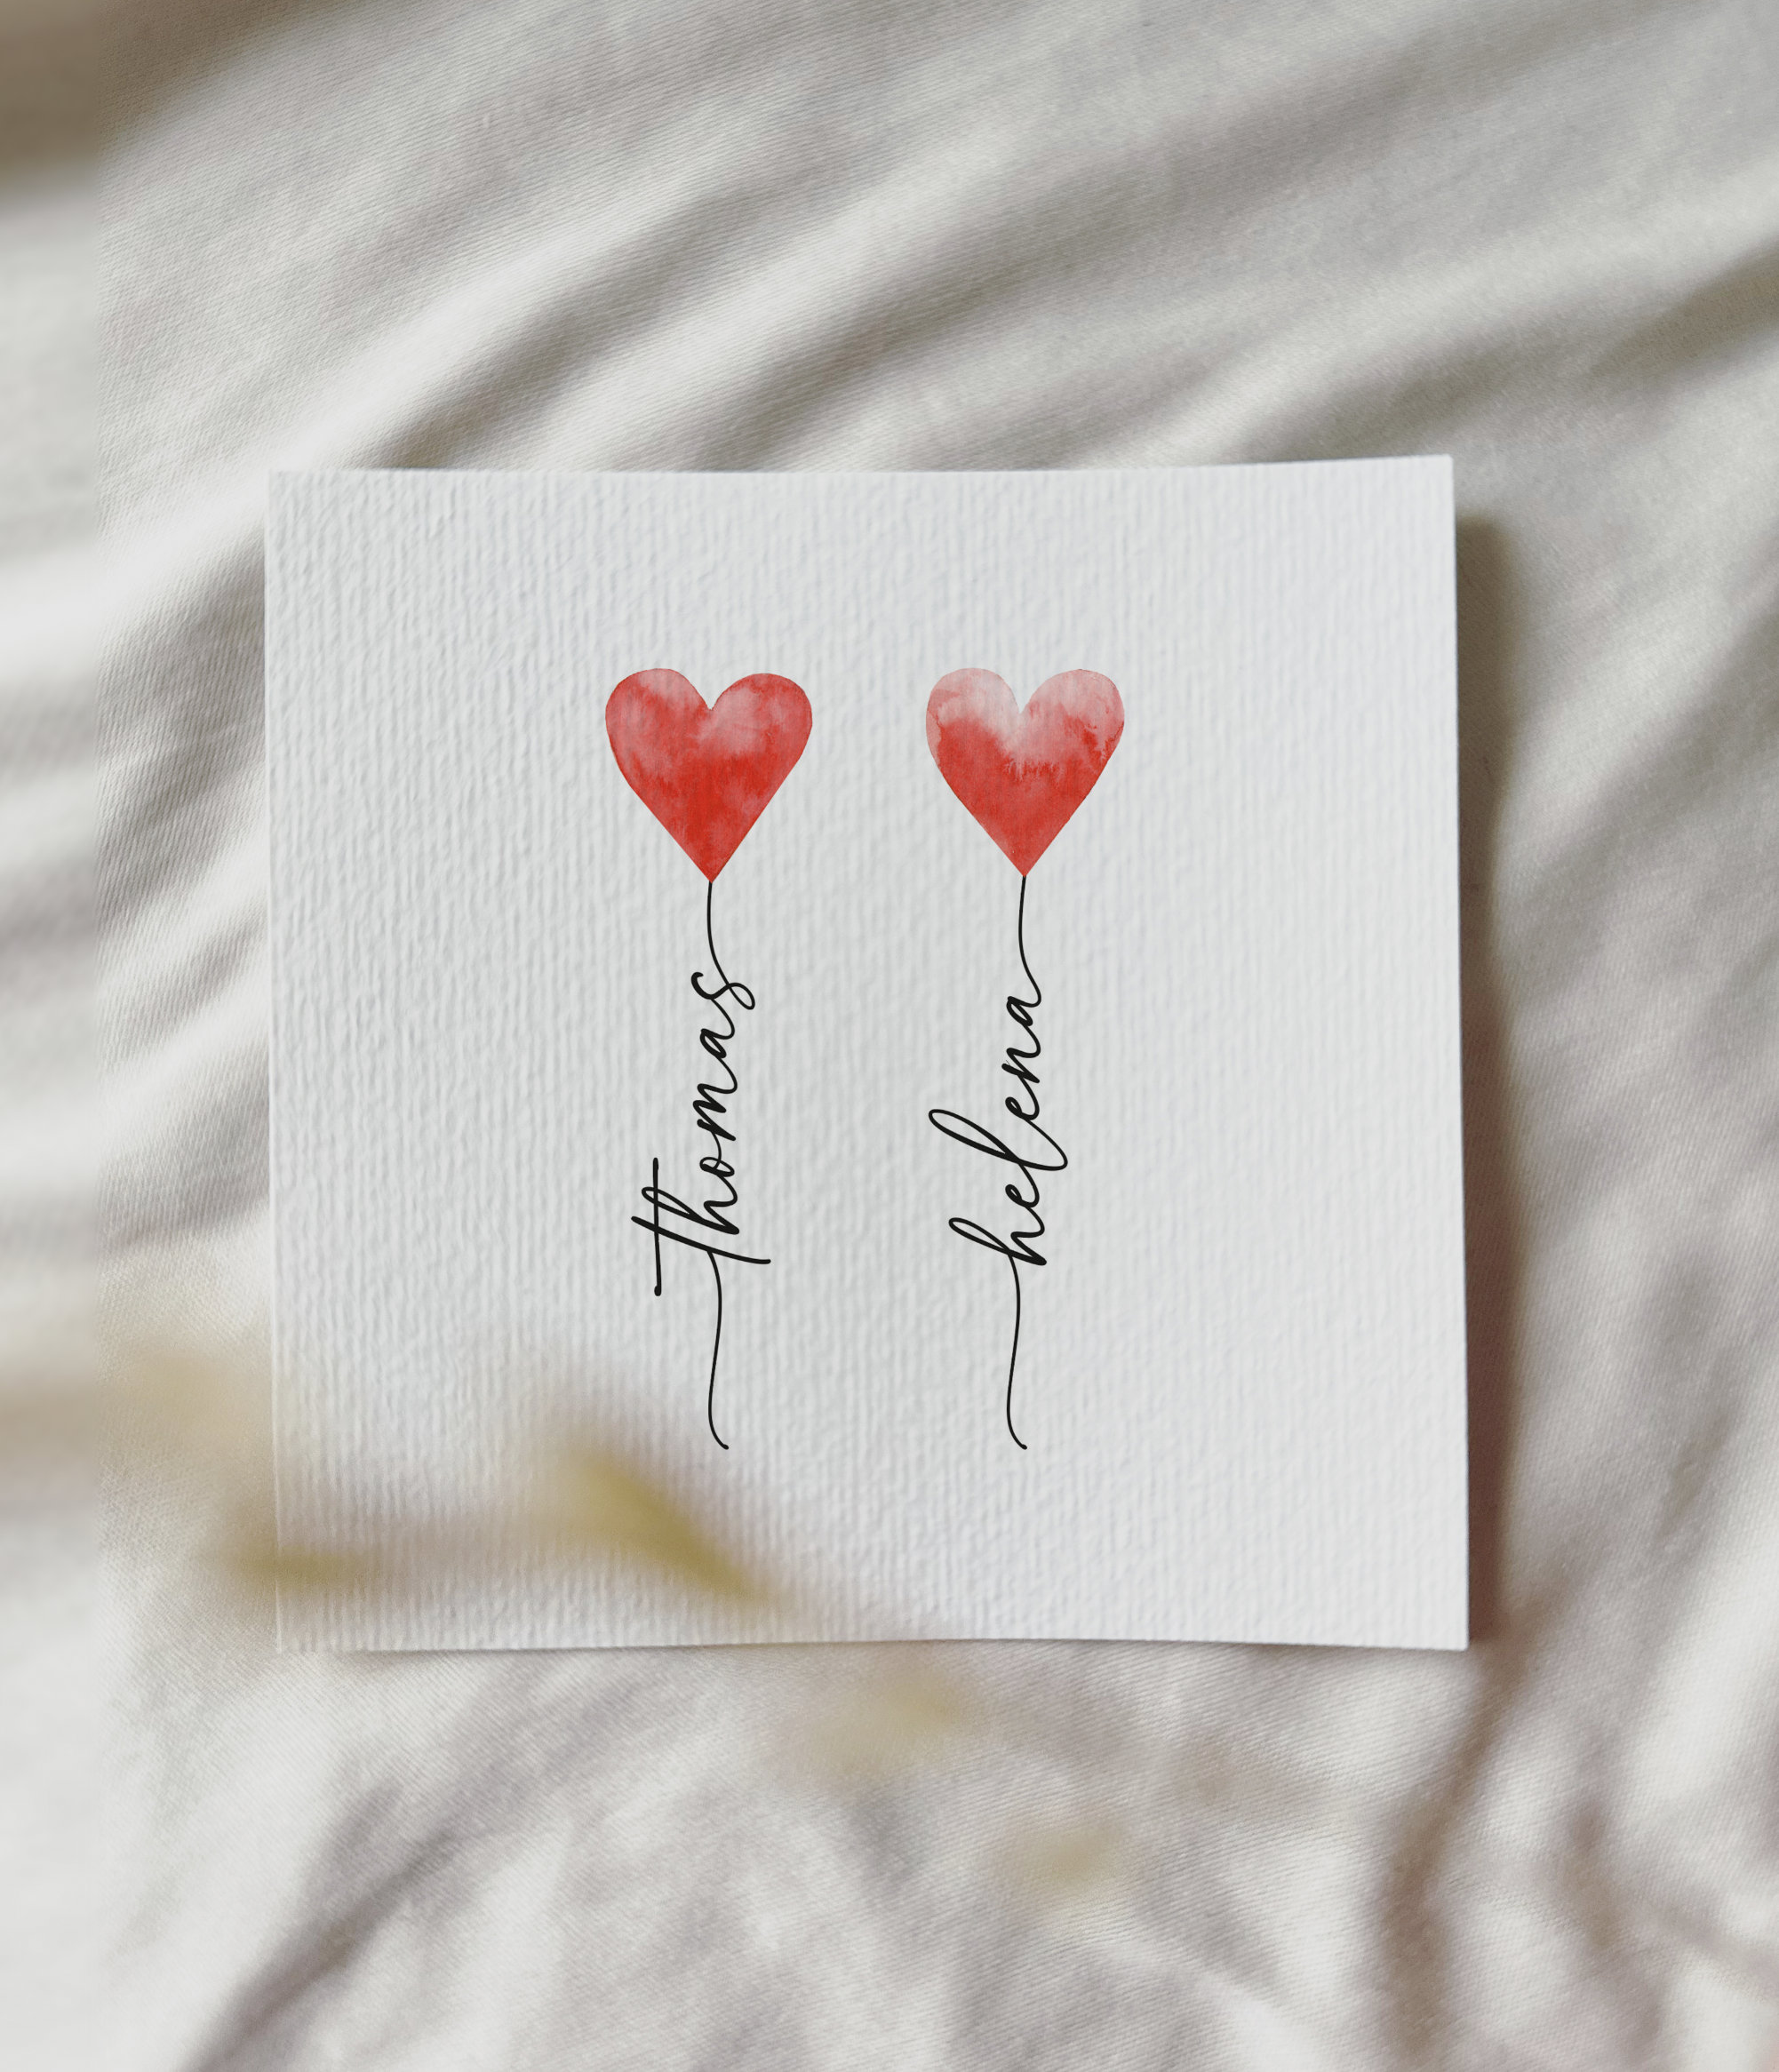 thomas
helena